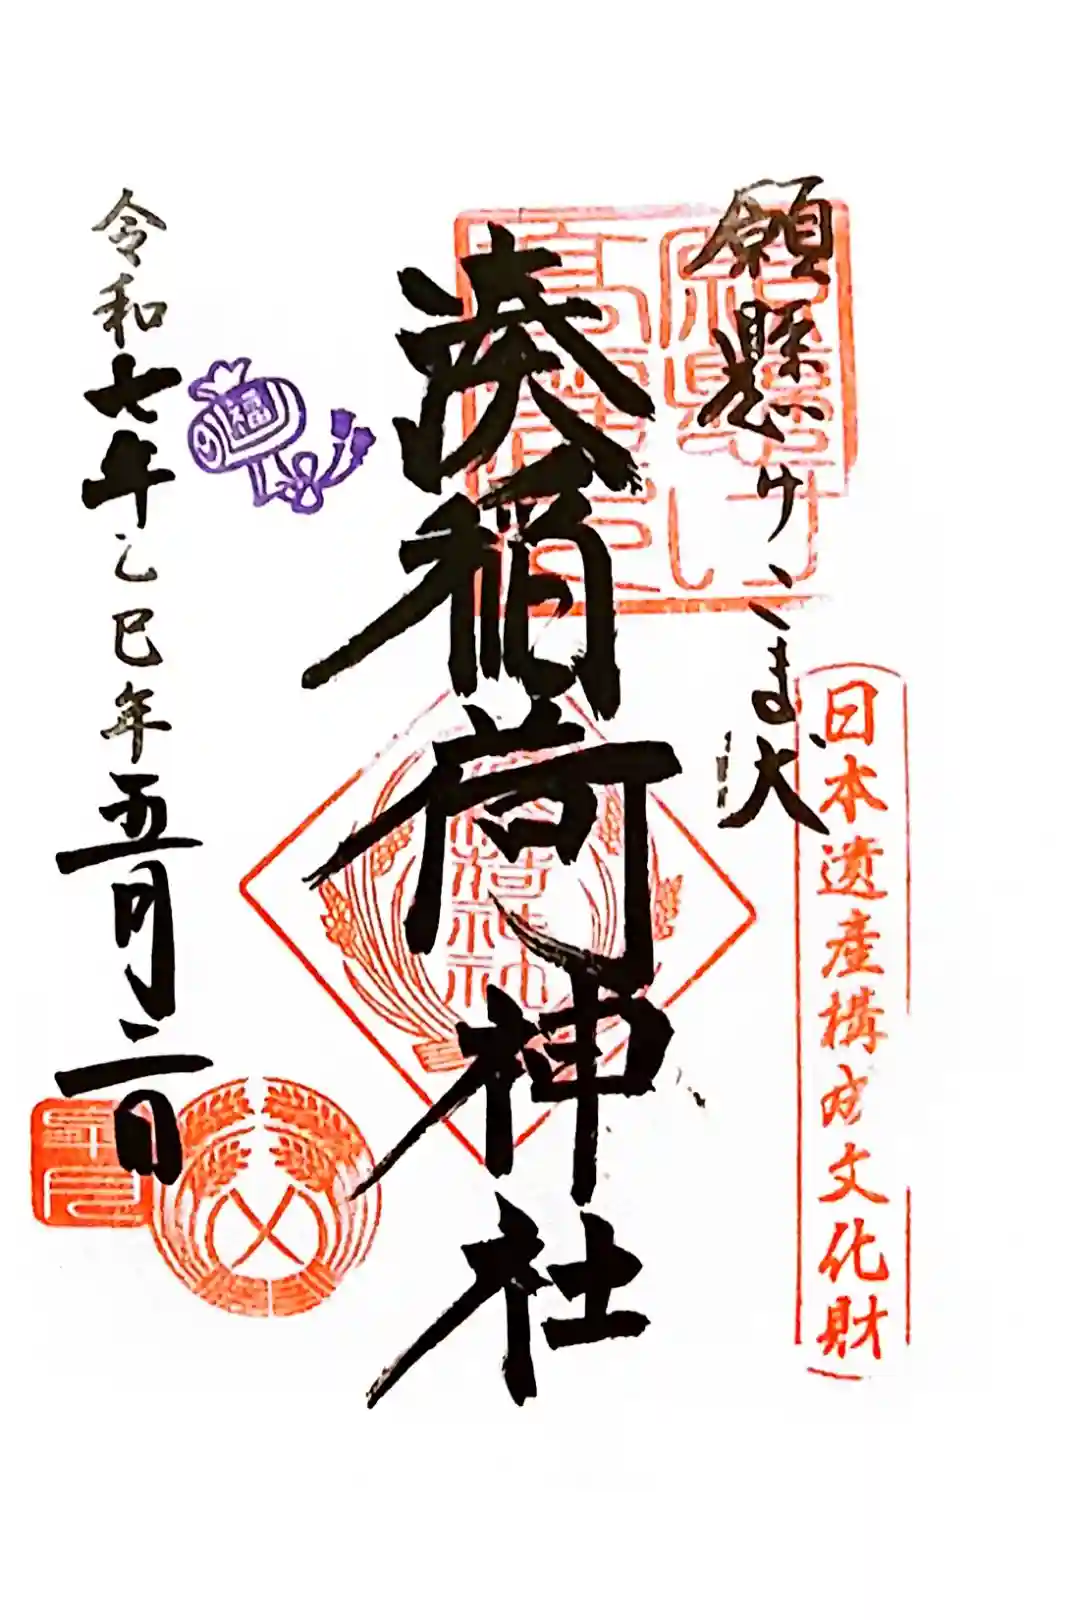 願懸けこま犬
日本遺産構成文化財
湊稲荷神社
福
令和七年乙巳年五月二日